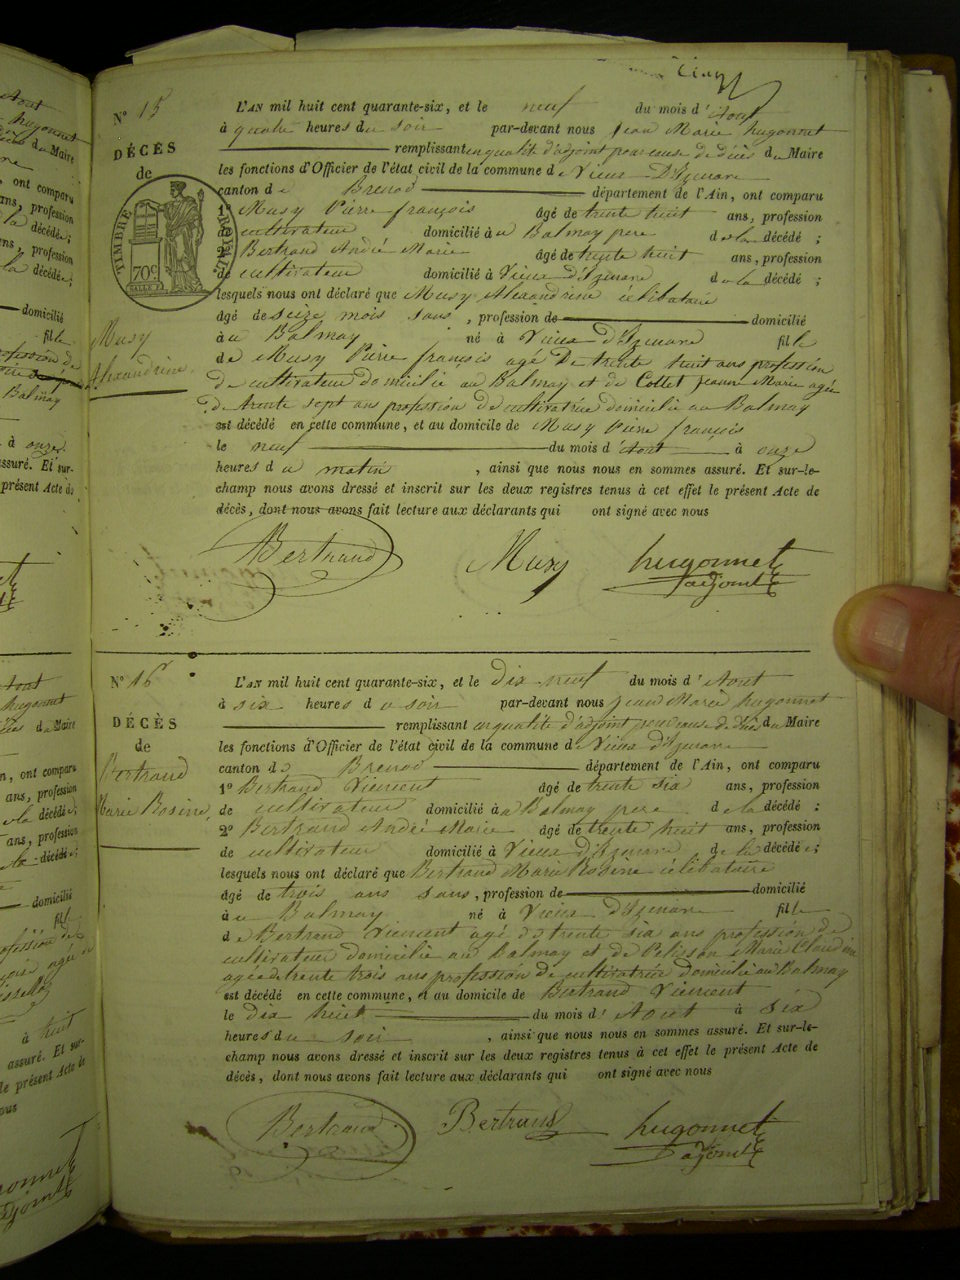 cinq
N° 15
DÉCÈS
de
TIMBRE ROYAL
70c
Musy
Alexandrine
L'AN mil huit cent quarante-six, et le neuf du mois d'Aout
à quatre heures du soir par-devant nous Jean Marie hugonnet
remplissant en qualité d'adjoint pour cause de décès du Maire
les fonctions d'Officier de l'état civil de la commune de Vieux D'Izenave
canton de Brenod département de l'Ain, ont comparu
1° Musy Pierre françois âgé de trente huit ans, profession
de cultivateur domicilié à u Balmay pere de la décédé ;
2° Bertrand André Marie âgé de trente huit ans, profession
de cultivateur domicilié à Vieux d'Izenave de la décédé ;
lesquels nous ont déclaré que Musy Alexandrine célibataire
âgé de seize mois sans, profession de domicilié
à u Balmay né à Vieux d'Izenave fille
de Musy Pierre françois agé De trente huit ans profession
De cultivateur domicilié au Balmay et de Collet jeanne Marie agée
De trente sept ans profession De cultivatrice domiciliée au Balmay
est décédé en cette commune, et au domicile de Musy Pierre françois
le neuf du mois d'Aout à onze
heures du matin, ainsi que nous nous en sommes assuré. Et sur-le-
champ nous avons dressé et inscrit sur les deux registres tenus à cet effet le présent Acte de
décès, dont nous avons fait lecture aux déclarants qui ont signé avec nous
Bertrand Musy hugonnet
adjoint
N° 16
DÉCÈS
de
Bertrand
Marie Rosine
L'AN mil huit cent quarante-six, et le Dix neuf du mois d'Aout
à six heures du soir par-devant nous Jean Marie hugonnet
remplissant en qualité d'adjoint pour cause de décès du Maire
les fonctions d'Officier de l'état civil de la commune de Vieux d'Izenave
canton de Brenod département de l'Ain, ont comparu
1° Bertrand Vincent âgé de trente six ans, profession
de cultivateur domicilié à u Balmay pere de la décédé ;
2° Bertrand André Marie âgé de trente huit ans, profession
de cultivateur domicilié à Vieux d'Izenave de la décédé ;
lesquels nous ont déclaré que Bertrand Marie Rosine célibataire
âgé de trois ans sans, profession de domicilié
à u Balmay né à Vieux d'Izenave fille
de Bertrand Vincent agé De trente six ans profession de
cultivateur domicilié au Balmay et de Pelisson Marie Claudine
agée de trente trois ans profession De cultivatrice domiciliée au Balmay
est décédé en cette commune, et au domicile de Bertrand Vincent
le dix huit du mois d'Aout à six
heures du soir, ainsi que nous nous en sommes assuré. Et sur-le-
champ nous avons dressé et inscrit sur les deux registres tenus à cet effet le présent Acte de
décès, dont nous avons fait lecture aux déclarants qui ont signé avec nous
Bertrand Bertrand hugonnet
adjoint